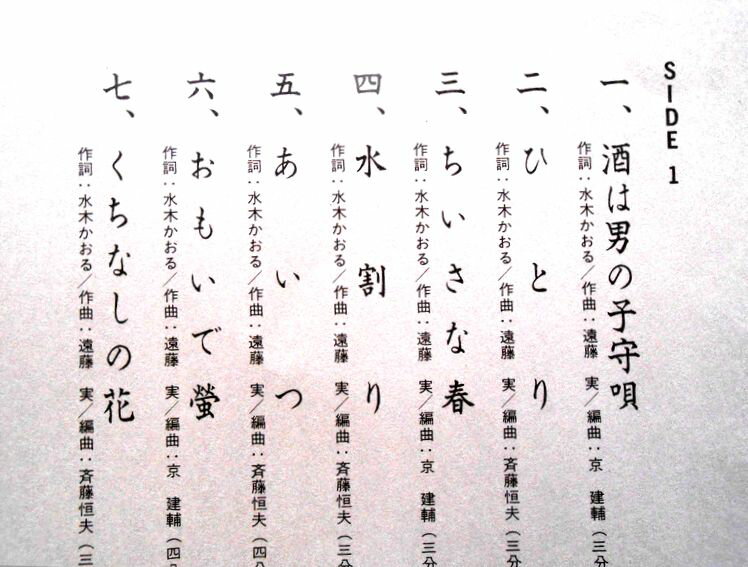 SIDE 1
一、酒は男の子守唄
作詞：水木かおる／作曲：遠藤　実／編曲：京　建輔（三分
二、ひとり
作詞：水木かおる／作曲：遠藤　実／編曲：斉藤恒夫（三分
三、ちいさな春
作詞：水木かおる／作曲：遠藤　実／編曲：京　建輔（三分
四、水割り
作詞：水木かおる／作曲：遠藤　実／編曲：斉藤恒夫（三分
五、あいつ
作詞：水木かおる／作曲：遠藤　実／編曲：斉藤恒夫（四分
六、おもいで螢
作詞：水木かおる／作曲：遠藤　実／編曲：京　建輔（四分
七、くちなしの花
作詞：水木かおる／作曲：遠藤　実／編曲：斉藤恒夫（三